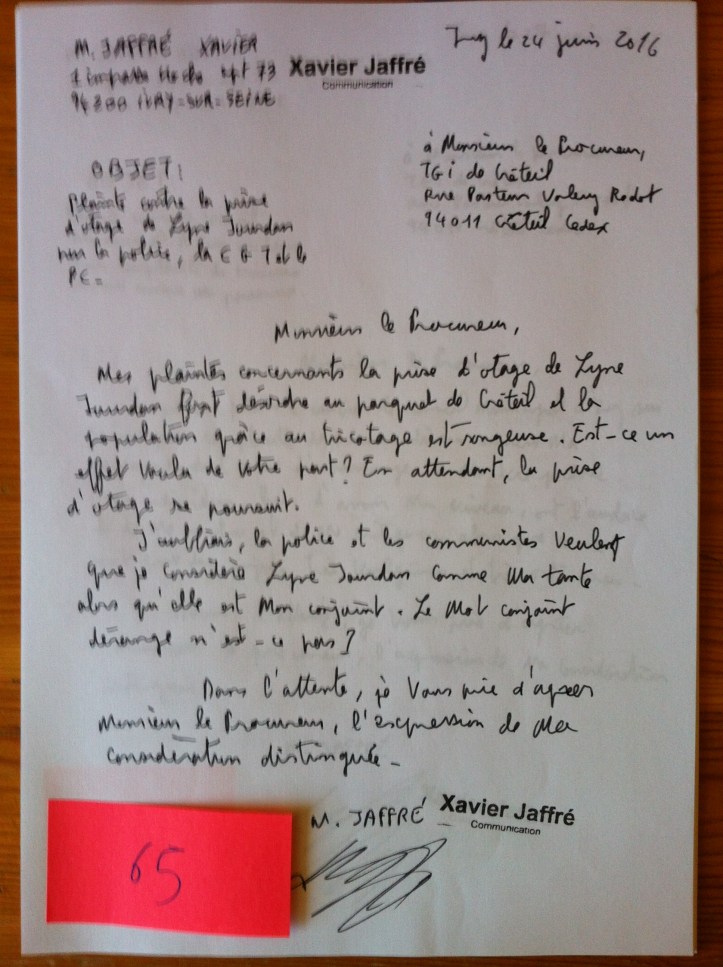 M. JAFFRÉ XAVIER
1 impasse apt 73
94200 IVRY-SUR-SEINE
Xavier Jaffré
Communication
Ivry le 24 juin 2016
à Monsieur le Procureur,
TGI de Créteil
Rue Pasteur Valery Radot
94011 Créteil Cedex
OBJET:
Plainte contre la prise
d'otage de Lyne Jourdan
par la police, la CGT et le
PC.
Monsieur le Procureur,
Mes plaintes concernants la prise d'otage de Lyne
Jourdan font désordre au parquet de Créteil et la
population grâce au tricotage est songeuse. Est-ce un
effet voulu de votre part? En attendant, la prise
d'otage se poursuit.
J'oubliais, la police et les communistes veulent
que je considère Lyne Jourdan comme ma tante
alors qu'elle est mon conjoint. Le mot conjoint
dérange n'est-ce pas?
Dans l'attente, je vous prie d'agréer
Monsieur le Procureur, l'expression de ma
considération distinguée.
M. JAFFRÉ
Xavier Jaffré
Communication
65